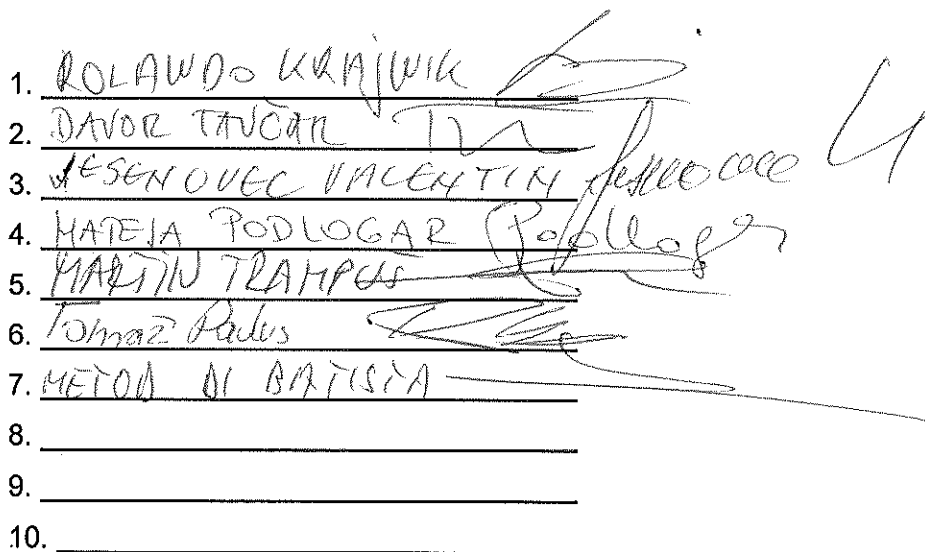 1. ROLANDO KRAJNIK
2. DAVOR TAVČAR
3. JESENOVEC VALENTIN
4. MATEJA PODLOGAR Podlogar
5. MARTIN TRAMPUŠ
6. Tomaž
7. METOD DI BATISTA
8.
9.
10.